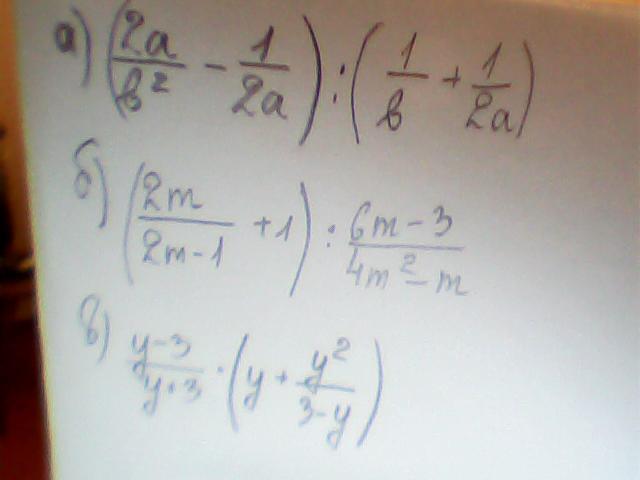 а) (2a/b² - 1/2a) : (1/b + 1/2a)
б) (2m/2m-1 + 1) : 6m-3/4m²-m
в) y-3/y+3 · (y + y²/3-y)